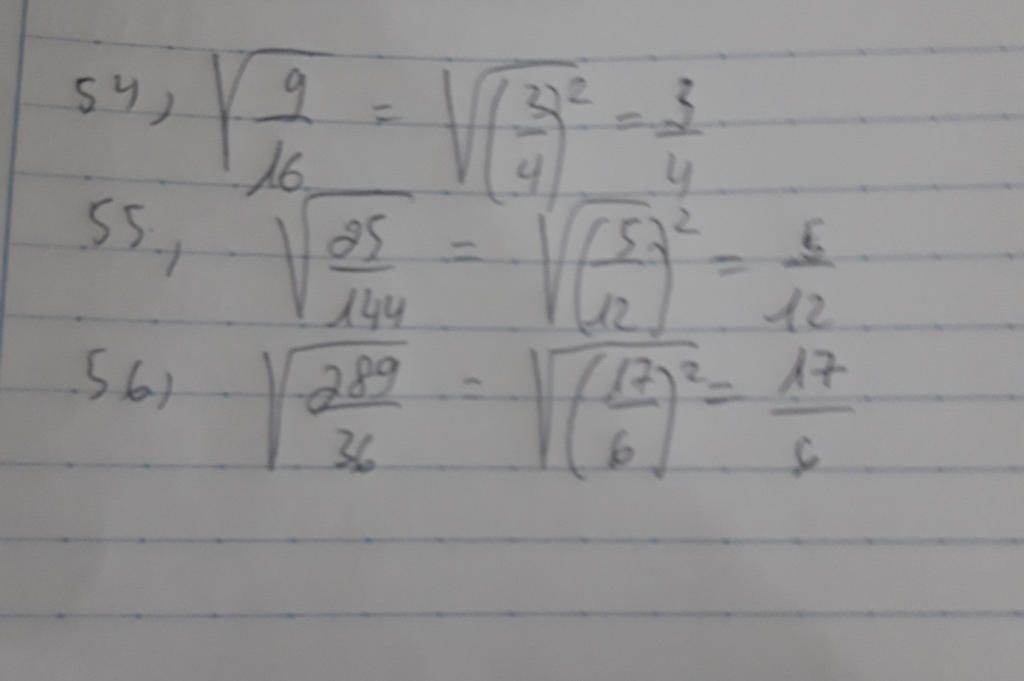 54, √(9/16) = √((3/4)²) = 3/4
55, √(25/144) = √((5/12)²) = 5/12
56, √(289/36) = √((17/6)²) = 17/6